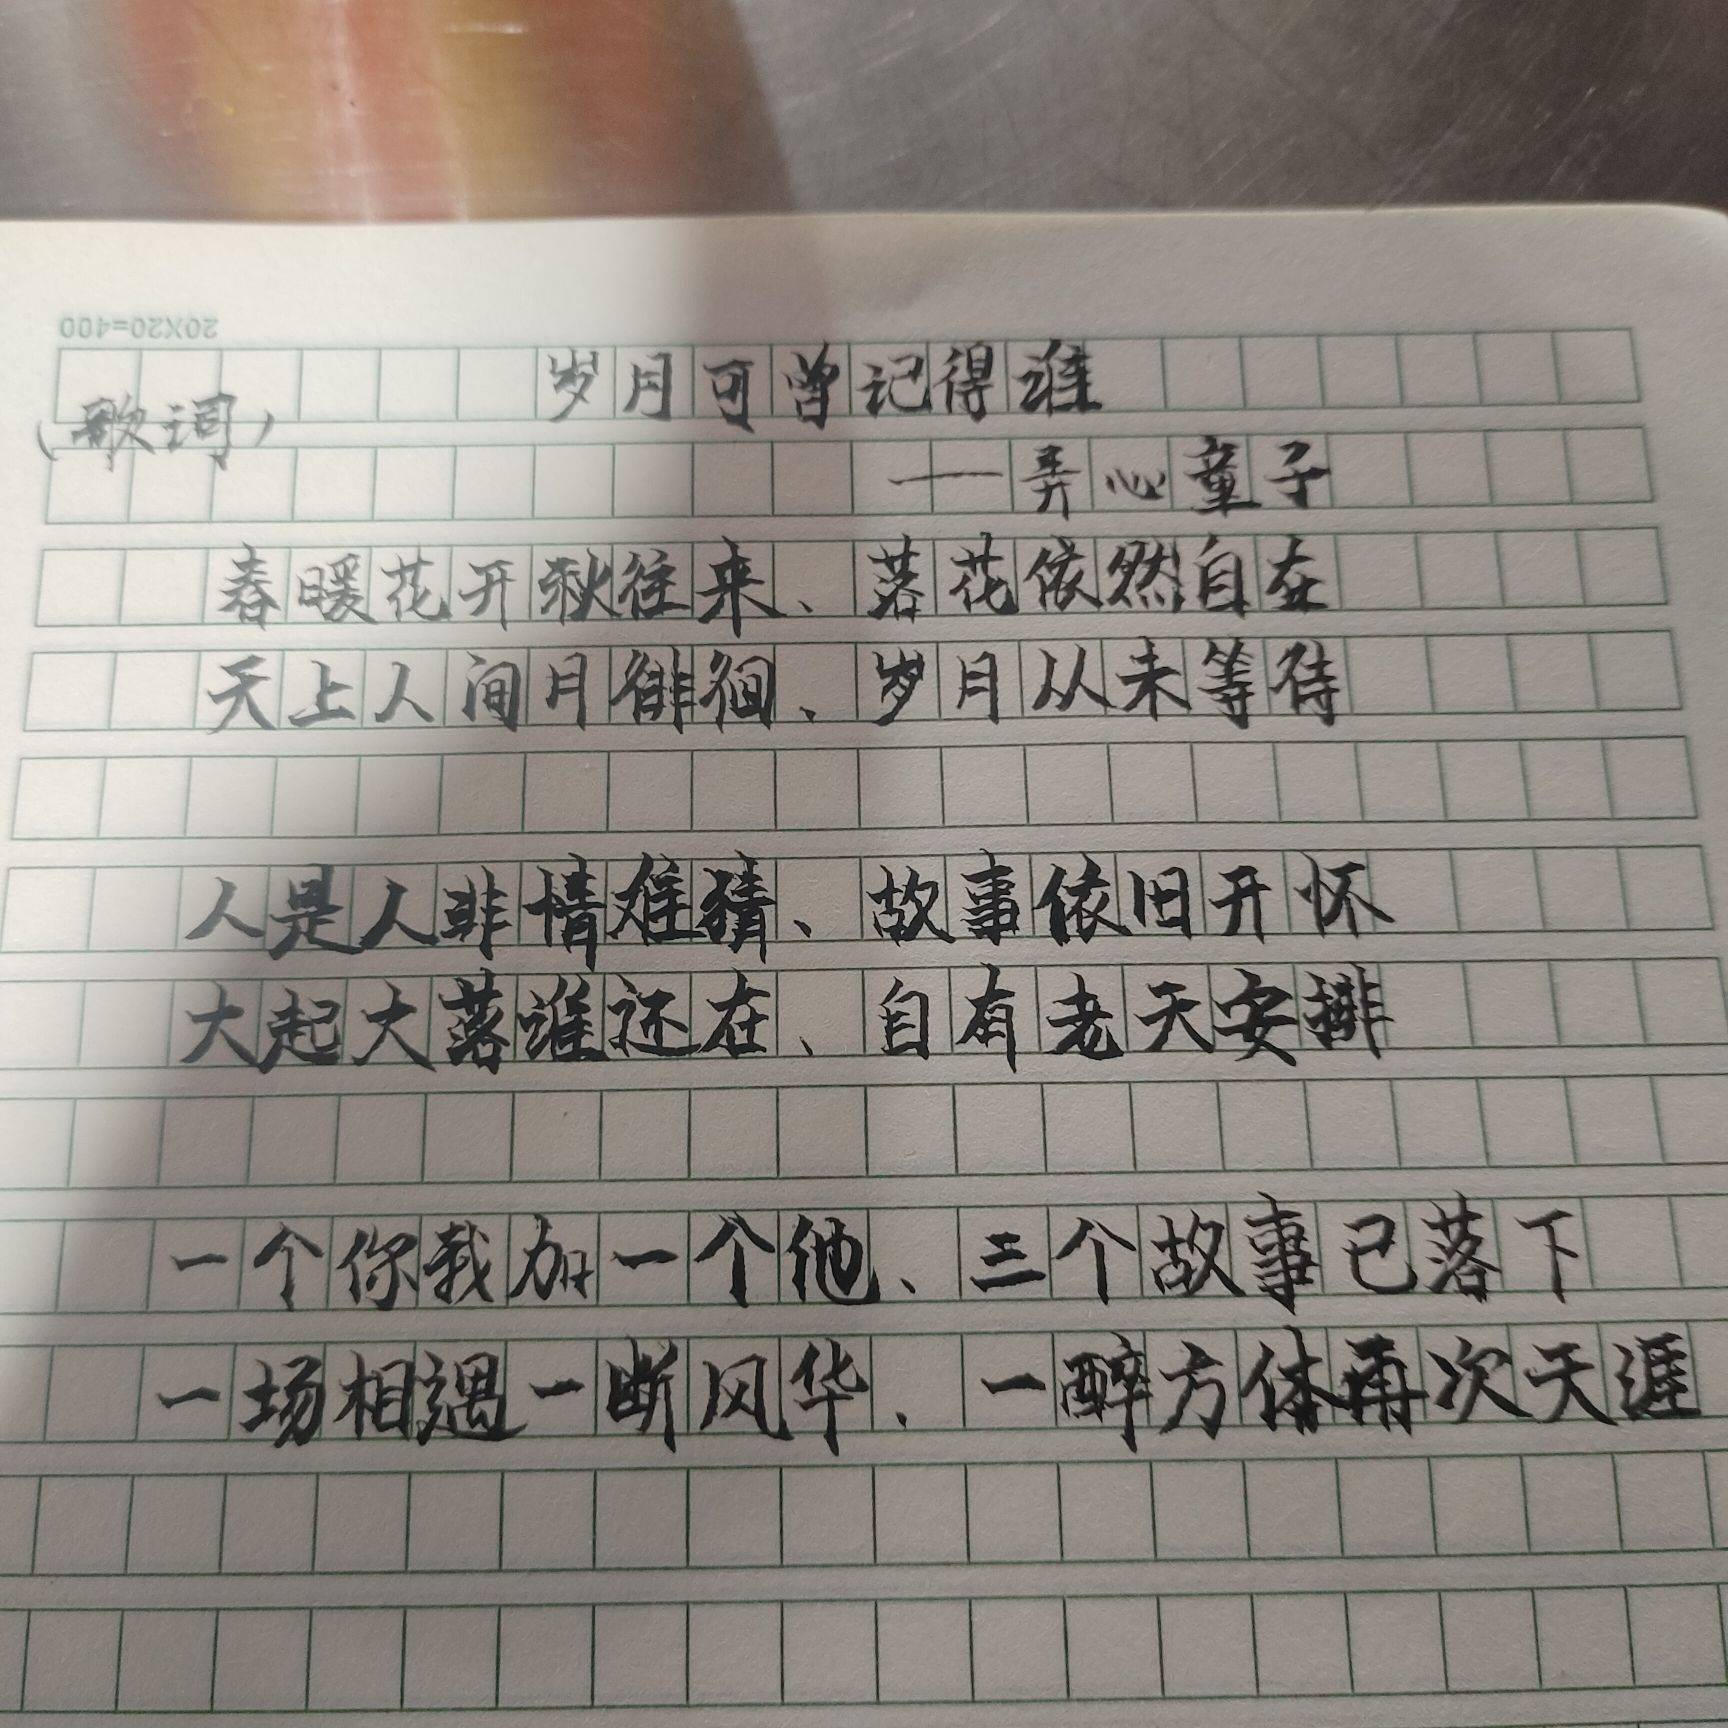 20X20=400
岁月可曾记得谁
（歌词）
——弄心童子
春暖花开秋往来、落花依然自在
天上人间月徘徊、岁月从未等待
人是人非情难猜、故事依旧开怀
大起大落谁还在、自有老天安排
一个你我加一个他、三个故事已落下
一场相遇一断风华、一醉方体再次天涯